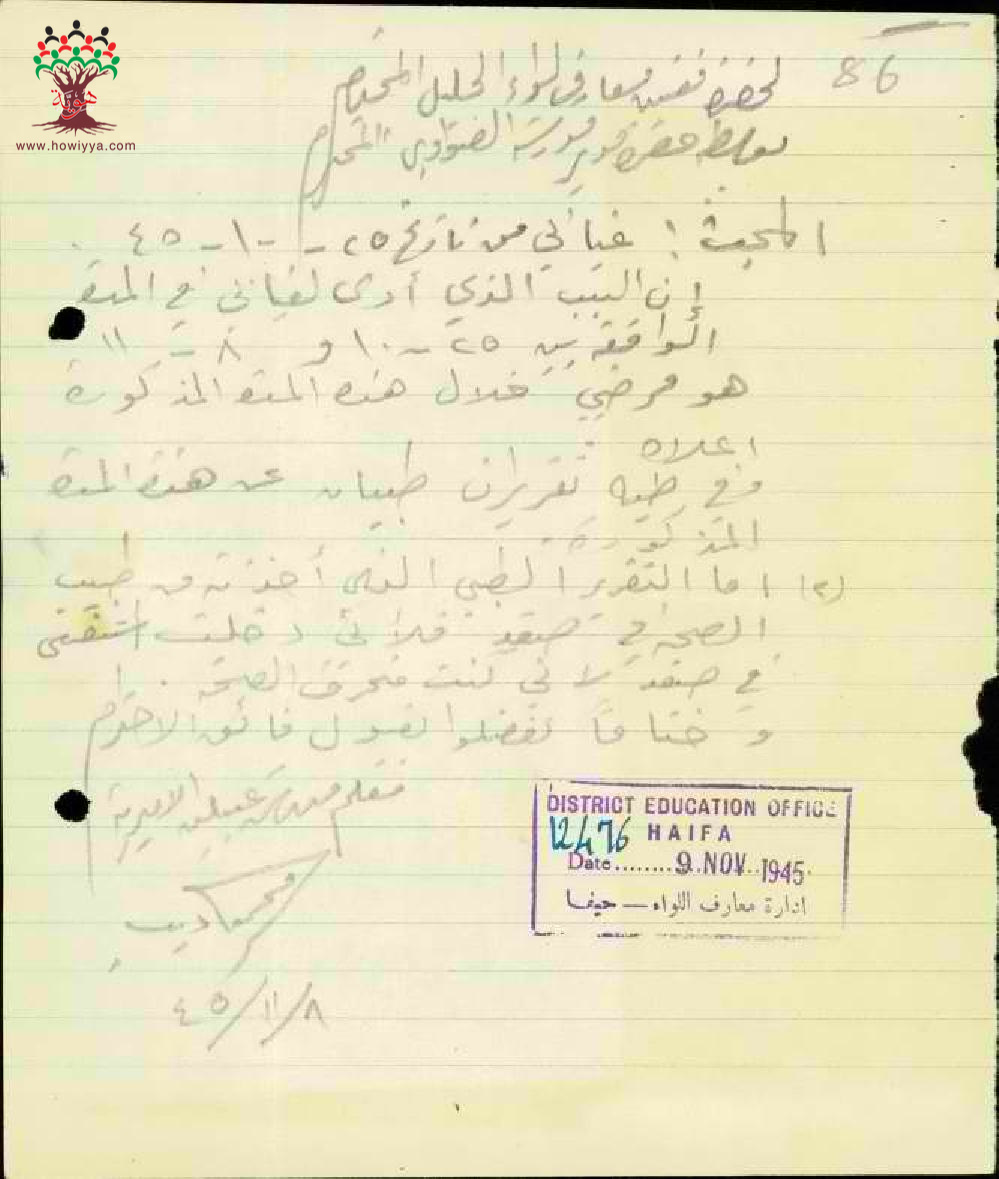 86
لحضرة مفتش معارف لواء الجليل المحترم
بواسطة حضرة مدير مدرسة المحترم
المبحث : غيابي من تاريخ ٢٥ - ١٠ - ٤٥ .
إن السبب الذي أدى لغيابي في المدة
الواقعة بين ٢٥ - ١٠ و ٨ - ١١
هو مرضي خلال هذه المدة المذكورة
اعلاه
وفي طيه تقريران طبيان عن هذه المدة
المذكورة
(٢) اما التقرير الطبي الذي أخذته من طبيب
الصحة في صفد فلأني دخلت
في صفد لاني كنت منحرف الصحة .
و ختاما تفضلوا بقبول فائق الاحترام
معلم مدرسة الاميرية
محمد ديب
٤٥/١١/٨
DISTRICT EDUCATION OFFICE
12476 HAIFA
Date........9. NOV..1945.
ادارة معارف اللواء — حيفا
www.howiyya.com